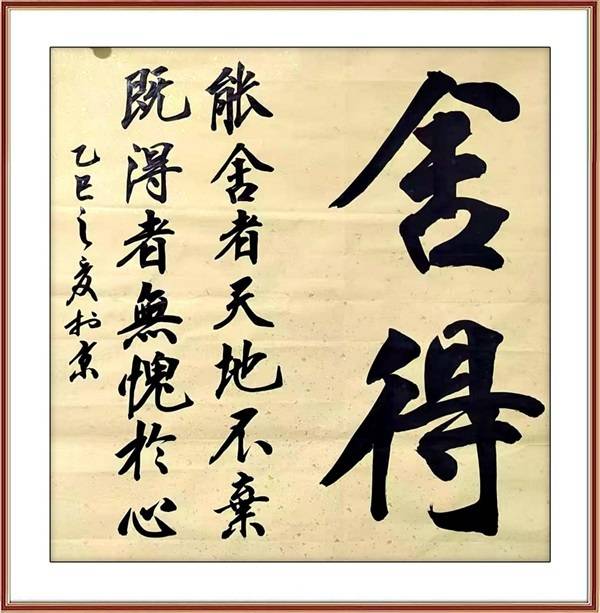 舍得
能舍者天地不棄
既得者無愧於心
乙巳之夏於京